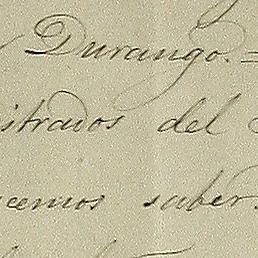 Durango. =
itrados del
cemos saber.